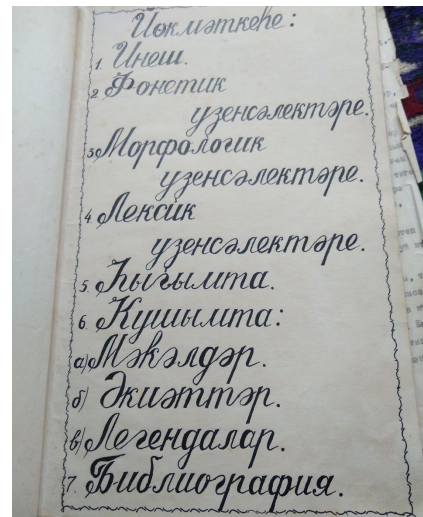 Йөкмәткеһе:
1. Инеш.
2. Фонетик
үзенсәлектәре.
3. Морфологик
үзенсәлектәре.
4. Лексик
үзенсәлектәре.
5. Һығымта.
6. Ҡушымта:
а) Мәҡәлдәр.
б) Әкиәттәр.
в) Легендалар.
7. Библиография.